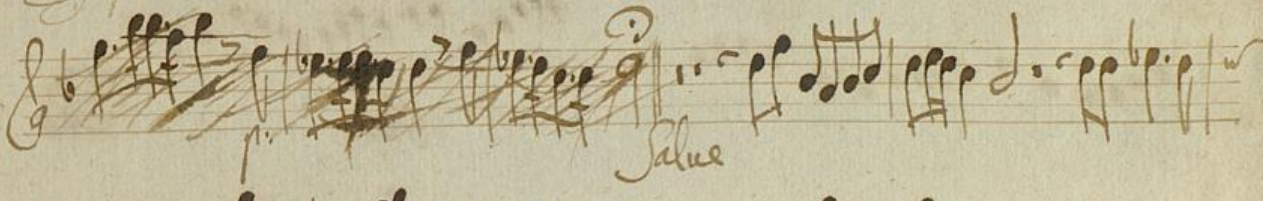 p:
Salue